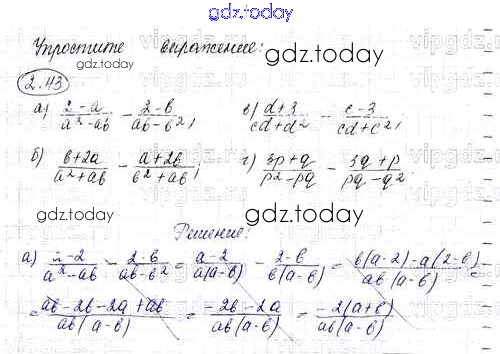 gdz.today
Упростите выражение:
gdz.today
gdz.today
2.43
а) (2-a)/(a²-ab) - (2-b)/(ab-b²), в) (d+3)/(cd+d²) - (c-3)/(cd+c²),
gdz.today
б) (b+2a)/(a²+ab) - (a+2b)/(b²+ab), г) (3p+q)/(p²-pq) - (3q+p)/(pq-q²).
gdz.today
Решение:
а) (a-2)/(a²-ab) - (2-b)/(ab-b²) = (a-2)/(a(a-b)) - (2-b)/(b(a-b)) = (b(a-2)-a(2-b))/(ab(a-b)) =
= (ab-2b-2a+ab)/(ab(a-b)) = (-2b-2a)/(ab(a-b)) = (-2(a+b))/(ab(a-b))